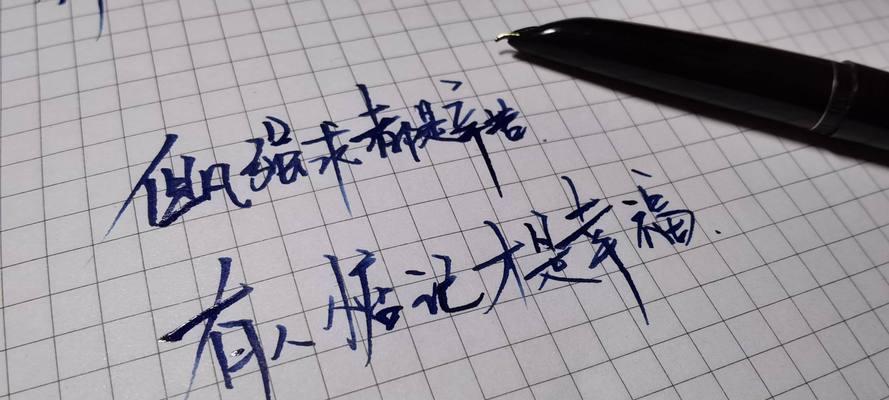 但凡强求都是辛苦.
有人惦记才是幸福.